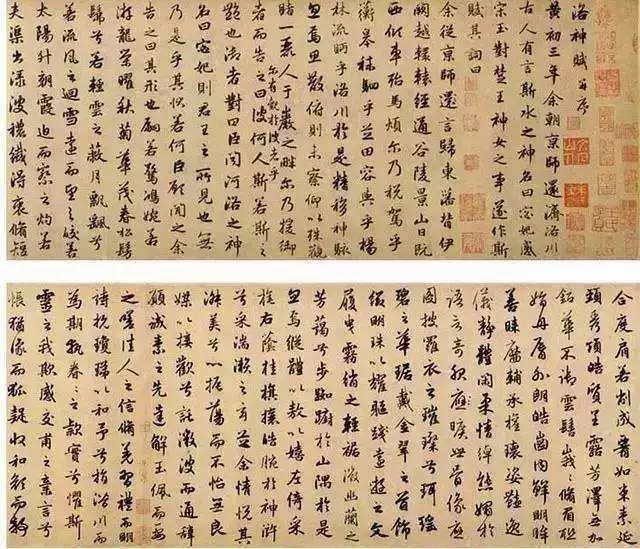 洛神賦 并序
黃初三年余朝京師還濟洛川
古人有言斯水之神名曰宓妃感
宋玉對楚王神女之事遂作斯
賦其詞曰
余從京師還言歸東藩背伊
闕越轘轅經通谷陵景山日既
西傾車殆馬煩尔乃稅駕乎
蘅皋秣駟乎芝田容與乎楊
林流眄乎洛川於是精移神駭
忽焉思散俯則未察仰以殊觀
睹一麗人于巖之畔尔乃援御
者而告之曰尔有覿於彼者乎彼何人斯若斯
之豔也御者對曰臣聞河洛之神
名曰宓妃則君王之所見也無
乃是乎其狀若何臣願聞之余
告之曰其形也翩若驚鴻婉若
游龍榮曜秋菊華茂春松髣
髴兮若輕雲之蔽月飄飖兮
若流風之迴雪遠而望之皎若
太陽升朝霞迫而察之灼若
夫渠出淥波穠纖得衷脩短
合度肩若削成腰如束素延
頸秀項皓質呈露芳澤無加
鉛華不御雲髻峩峩脩眉聯
娟丹脣外朗皓齒內鮮明眸
善睞靨輔承權瓌姿豔逸
儀靜體閑柔情綽態媚於
語言奇服曠世骨像應
圖披羅衣之璀璨兮珥瑤
碧之華琚戴金翠之首飾
綴明珠以耀軀踐遠遊之文
履曳霧綃之輕裾微幽蘭之
芳藹兮步踟躕於山隅於是
忽焉縱體以遨以嬉左倚采
旄右蔭桂旗攘皓腕於神滸
兮采湍瀨之玄芝余情悅其
淑美兮心振蕩而不怡無良
媒以接歡兮託微波而通辭
願誠素之先達解玉佩而要
之嗟佳人之信脩羌習禮而明
詩抗瓊珶以和予兮指潛川而
為期執眷之款實兮懼斯
靈之我欺感交甫之棄言兮
悵猶豫而狐疑收和顏而靜